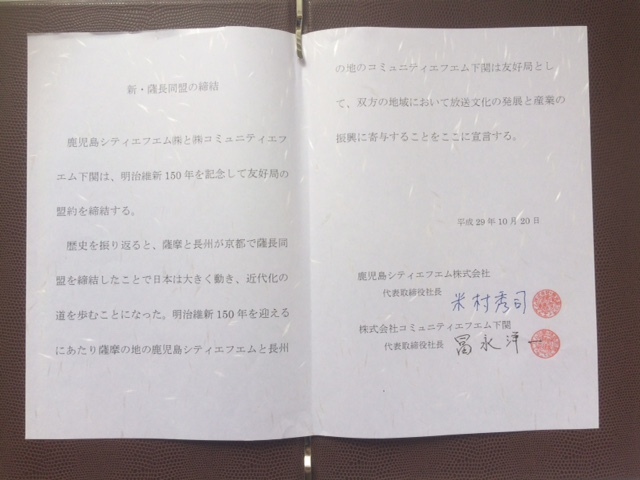 新・薩長同盟の締結
鹿児島シティエフエム㈱と㈱コミュニティエフ
エム下関は、明治維新150年を記念して友好局の
盟約を締結する。
歴史を振り返ると、薩摩と長州が京都で薩長同
盟を締結したことで日本は大きく動き、近代化の
道を歩むことになった。明治維新150年を迎える
にあたり薩摩の地の鹿児島シティエフエムと長州
の地のコミュニティエフエム下関は友好局とし
て、双方の地域において放送文化の発展と産業の
振興に寄与することをここに宣言する。
平成29年10月20日
鹿児島シティエフエム株式会社
代表取締役社長 米村秀司
株式会社コミュニティエフエム下関
代表取締役社長 冨永洋一